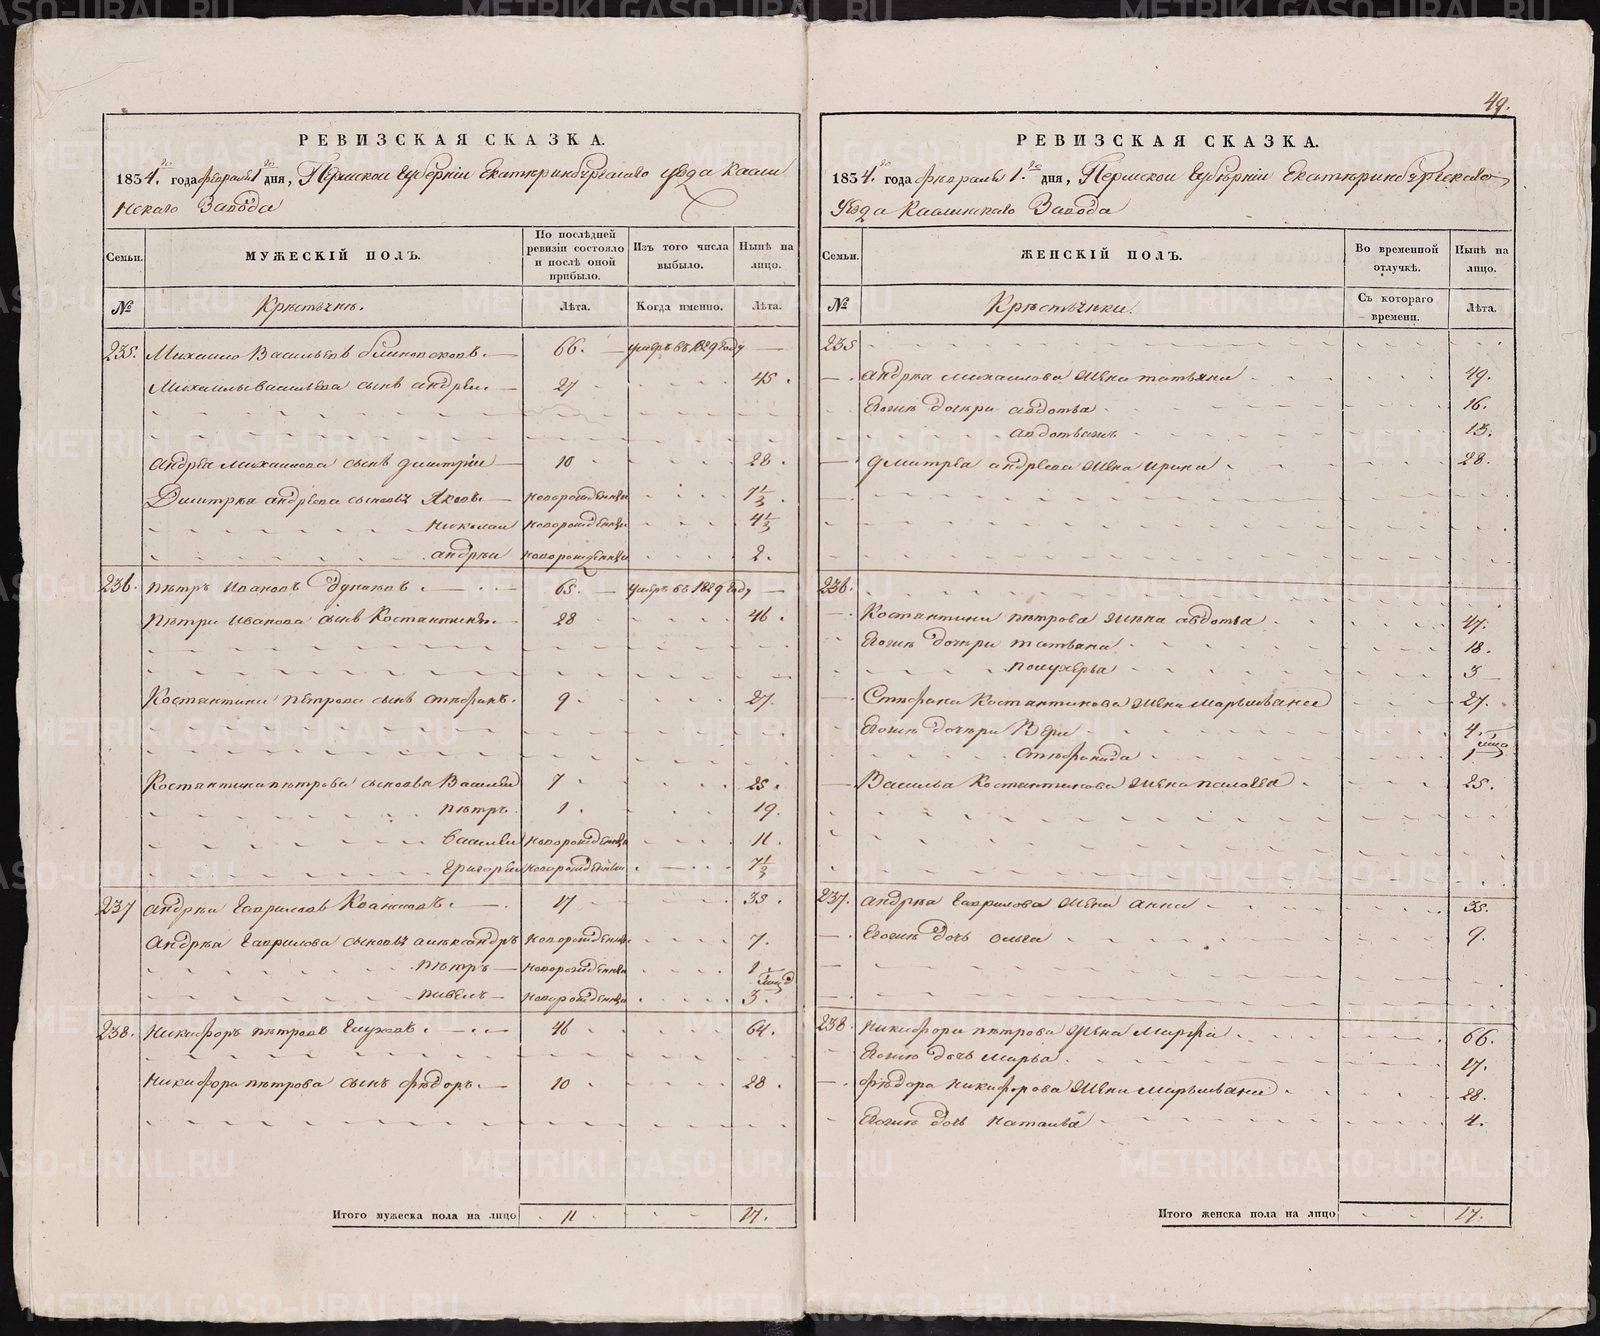 49.
РЕВИЗСКАЯ СКАЗКА.
1834.го года февраля 1го дня, Пермской Губернiи Екатеринбургскаго уѣзда Касли
нскаго Завода
Семьи.
МУЖЕСКІЙ ПОЛЪ.
По послѣдней ревизіи состояло и послѣ оной прибыло.
Изъ того числа выбыло.
Нынѣ на лицо.
№
Крестьянѣ.
Лѣта.
Когда именно.
Лѣта.
235. Михаило Васильевъ 66. умеръ въ 1829 году
Михаилы Васильева сынъ андреи. 27 45.
андрея михаилова сынъ дмитріи 10 28.
Димитрея андреева сыновья Яковъ новорожденны 7 1/2.
николаи новорожденны 4 1/2
андреи новорожденны 2.
236. петръ Ивановъ 65. умеръ въ 1829 году
петра Иванова сынъ Костантинъ. 28 46.
Костантина петрова сынъ стефанъ. 9 27.
Костантина петрова сыновья Василеи 7 25.
петръ. 1. 19.
Василеи новорожденны 11.
Григореи новорожденныи 7 1/2
237 андреи Гавриловъ 17 35.
Андрея Гаврилова сыновья александръ новорожденны. 7.
петръ новорожденны 1
павелъ новорожденны 3.
238. Никифоръ петровъ Глуховъ. 46 64.
Никифора петрова сынъ федоръ. 10 28.
Итого мужеска пола на лицо 11 17.
РЕВИЗСКАЯ СКАЗКА.
1834.го года февраля 1.го дня, Пермской Губерніи Екатеринбургскаго
Уѣзда Каслинскаго Завода
Семьи.
ЖЕНСКІЙ ПОЛЪ.
Во временной отлучкѣ.
Нынѣ на лицо.
№
Крестьянки.
Съ котораго времени.
Лѣта.
235
андрея михаилова жена татьяна 49.
Егожъ дочери авдотья 16.
авдотьяжъ 13.
дмитрея андреева жена ирина 28.
236.
Костантина петрова жена авдотья 47.
Егожъ дочери татьяна 18.
3
Стефана Костантинова жена Марья 27.
Егожъ дочери Вера 4.
Стефанида 1
Василья Костантинова жена 25.
237. андрея Гаврилова жена анна 35.
Егожъ дочь ольга 9.
238. Никифора петрова жена Марфа 66.
Егожъ дочь марья 17.
федора никифорова жена Марья 28.
Егожъ дочь Наталья 4.
Итого женска пола на лицо 17.
METRIKI.GASO-URAL.RU